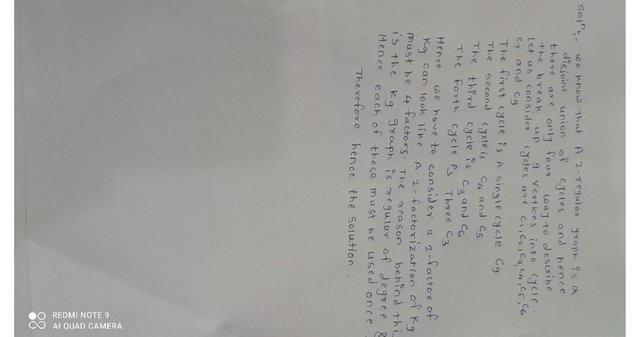 Solⁿ:- we know that A 2-regular graph is a
disjoint union of cycles and hence
there are only four way to describe
the break up 9 vertices into cycle.
Let us consider cycles are C1, C2, C3, C4, C5, C6
C7 and C9
The first cycle is A single cycle C9
The second cycle is C4 and C5
The third cycle is C3 and C6
The forth cycle is Three C3
Hence we have to consider a 2-factor of
K9 can look like. A 2-factorization of K9
must be 4 factors. The reason behind thi
is the K9 graph is regular of degree 8
Hence each of these must be used once
Therefore hence the solution.
REDMI NOTE 9
AI QUAD CAMERA